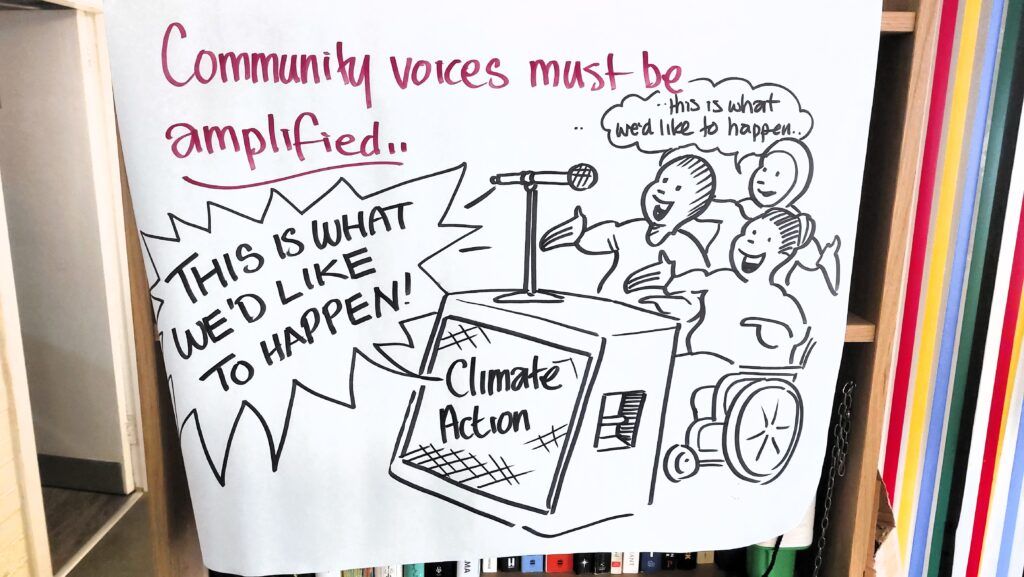 Community voices must be
amplified..
..this is what
we'd like to happen..
THIS IS WHAT
WE'D LIKE
TO HAPPEN!
Climate
Action